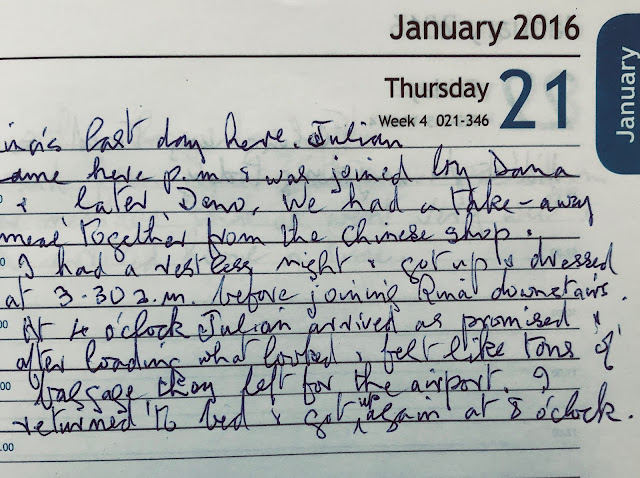 January 2016
January
Thursday
21
Week 4 021-346
ina's last day here. Julian
came here p.m & was joined by Dana
& later Dono. We had a take-away
meal together from the Chinese shop.
I had a restless night & got up & dressed
at 3.30 a.m. before joining Rina downstairs.
At 4 o'clock Julian arrived as promised &
after loading what looked, felt like tons of
baggage they left for the airport. I
returned to bed & got up again at 8 o'clock.